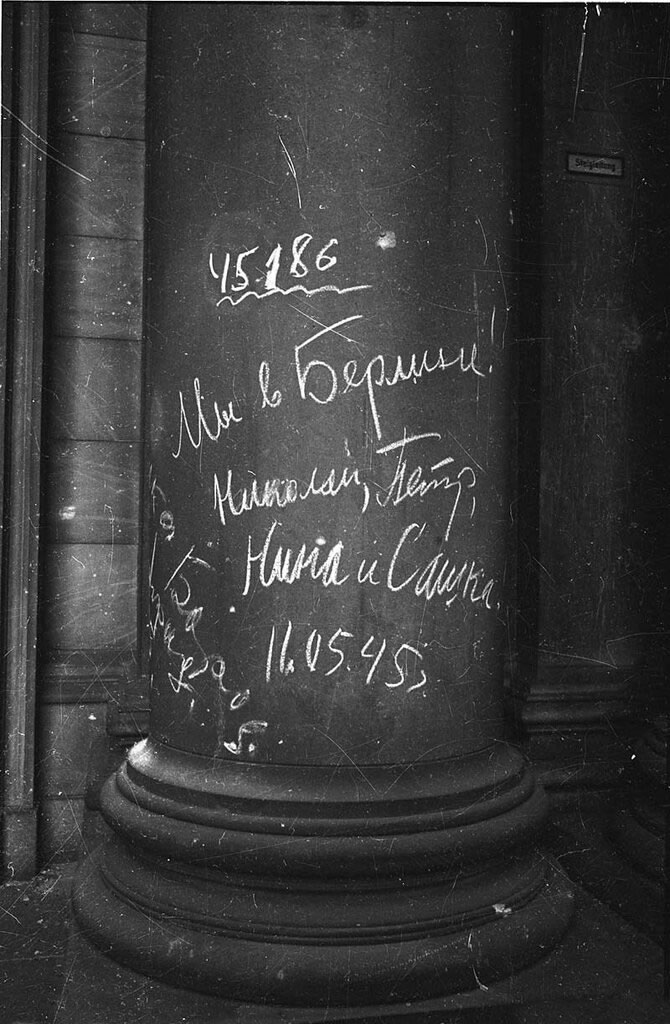 Steigleitung
45186
Мы в Берлине!
Николай, Петр,
Нина и Сашка.
11.05.45